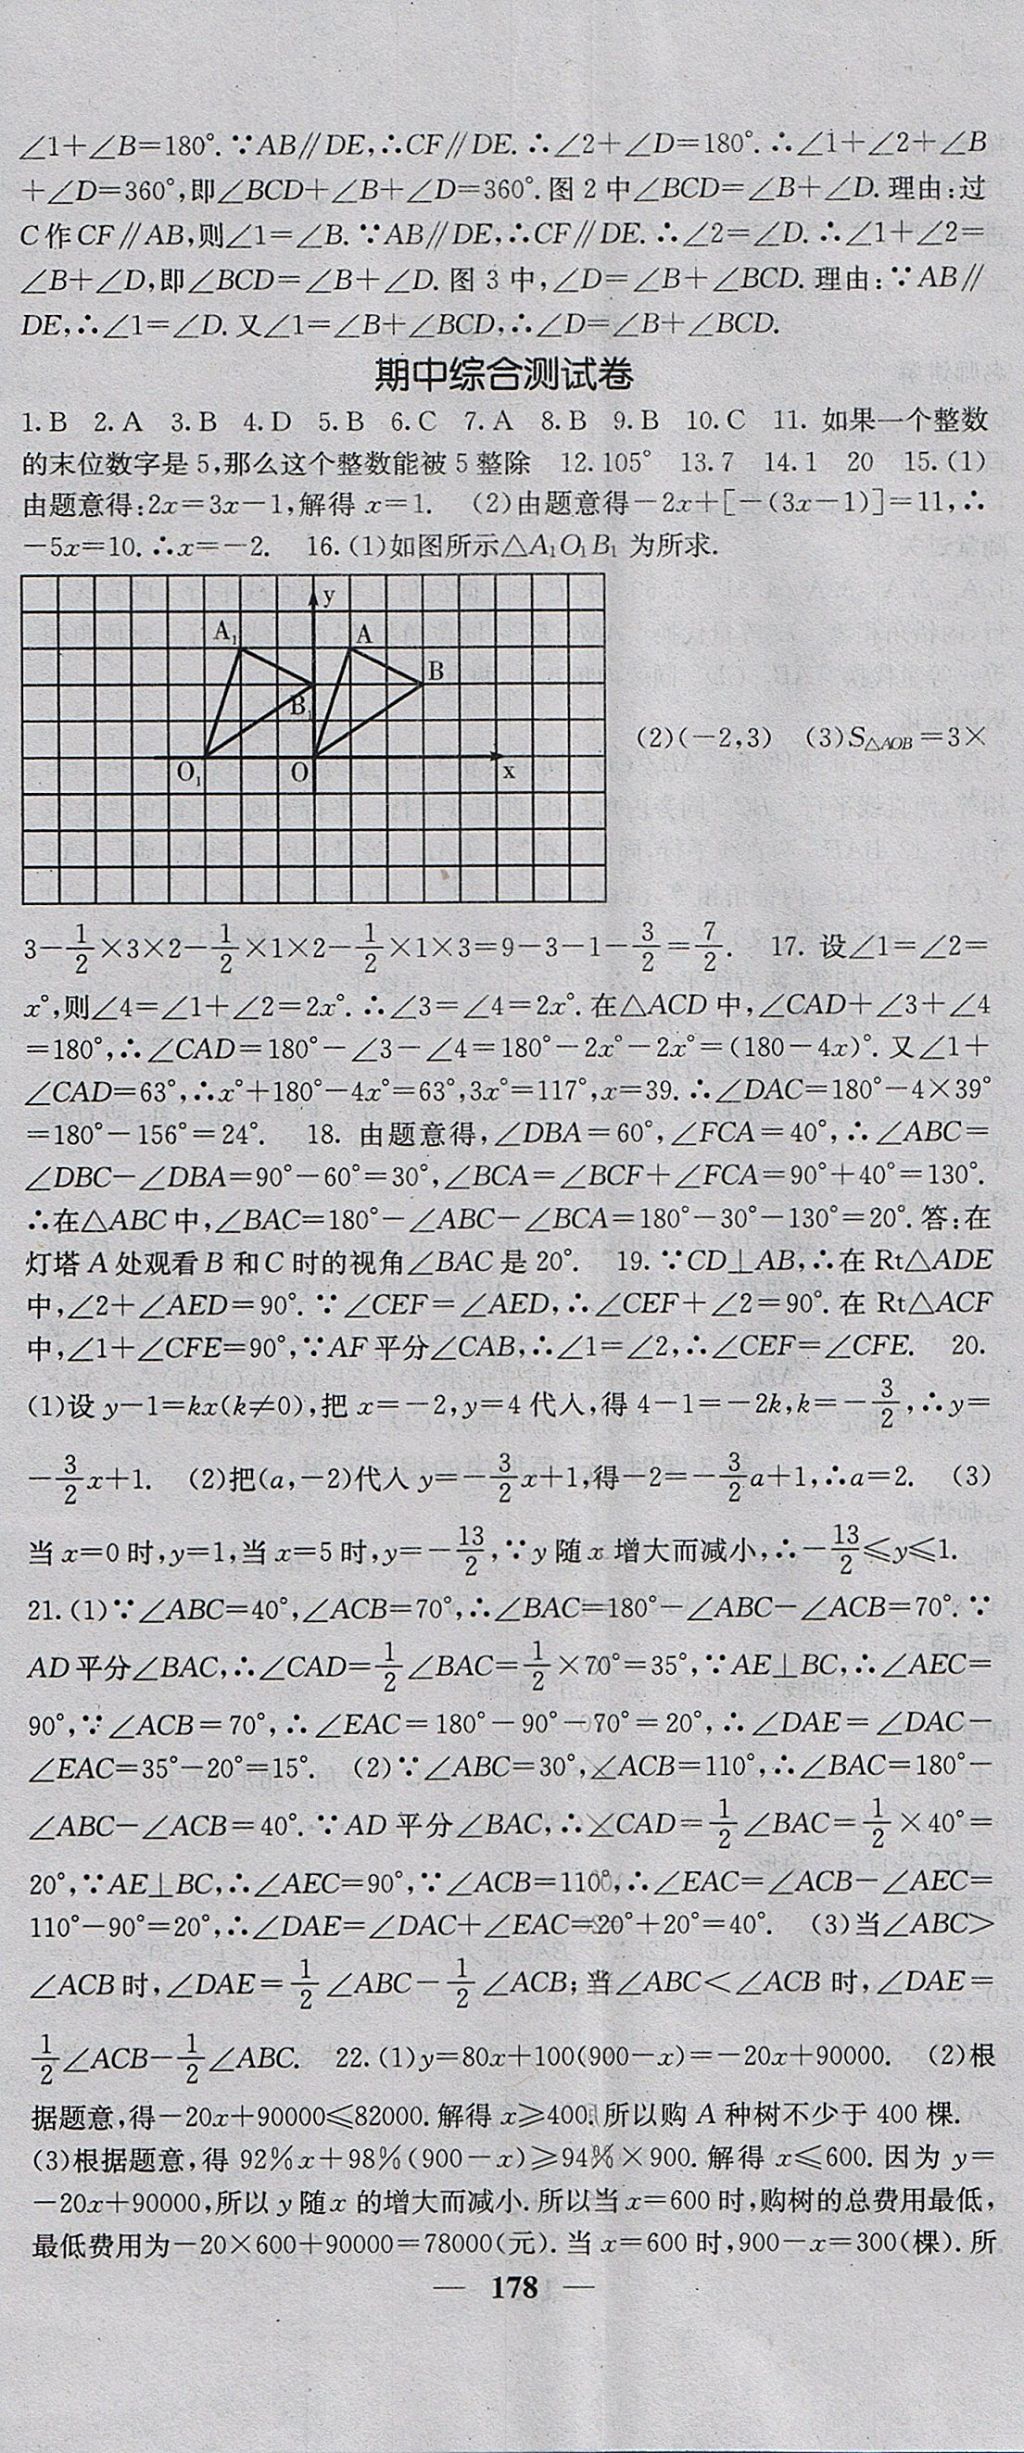 ∠1+∠B=180°.∵AB∥DE,∴CF∥DE.∴∠2+∠D=180°.∴∠1+∠2+∠B
+∠D=360°,即∠BCD+∠B+∠D=360°.图2中∠BCD=∠B+∠D.理由:过
C作CF∥AB,则∠1=∠B.∵AB∥DE,∴CF∥DE.∴∠2=∠D.∴∠1+∠2=
∠B+∠D,即∠BCD=∠B+∠D.图3中,∠D=∠B+∠BCD.理由:∵AB∥
DE,∴∠1=∠D.又∠1=∠B+∠BCD,∴∠D=∠B+∠BCD.
期中综合测试卷
1.B 2.A 3.B 4.D 5.B 6.C 7.A 8.B 9.B 10.C 11.如果一个整数
的末位数字是5,那么这个整数能被5整除 12.105° 13.7 14.1 20 15.(1)
由题意得:2x=3x-1,解得x=1. (2)由题意得-2x+[-(3x-1)]=11,∴
-5x=10.∴x=-2. 16.(1)如图所示△A₁O₁B₁为所求.
y
A₁ A
B
B₁
O₁ O x
(2)(-2,3) (3)S△AOB=3×
3-1/2×3×2-1/2×1×2-1/2×1×3=9-3-1-3/2=7/2. 17.设∠1=∠2=
x°,则∠4=∠1+∠2=2x°.∴∠3=∠4=2x°.在△ACD中,∠CAD+∠3+∠4
=180°,∴∠CAD=180°-∠3-∠4=180°-2x°-2x°=(180-4x)°.又∠1+
∠CAD=63°,∴x°+180°-4x°=63°,3x°=117°,x=39.∴∠DAC=180°-4×39°
=180°-156°=24°. 18.由题意得,∠DBA=60°,∠FCA=40°,∴∠ABC=
∠DBC-∠DBA=90°-60°=30°,∠BCA=∠BCF+∠FCA=90°+40°=130°.
∴在△ABC中,∠BAC=180°-∠ABC-∠BCA=180°-30°-130°=20°.答:在
灯塔A处观看B和C时的视角∠BAC是20°. 19.∵CD⊥AB,∴在Rt△ADE
中,∠2+∠AED=90°.∵∠CEF=∠AED,∴∠CEF+∠2=90°.在Rt△ACF
中,∠1+∠CFE=90°,∵AF平分∠CAB,∴∠1=∠2,∴∠CEF=∠CFE. 20.
(1)设y-1=kx(k≠0),把x=-2,y=4代入,得4-1=-2k,k=-3/2,∴y=
-3/2x+1. (2)把(a,-2)代入y=-3/2x+1,得-2=-3/2a+1,∴a=2. (3)
当x=0时,y=1,当x=5时,y=-13/2,∵y随x增大而减小,∴-13/2≤y≤1.
21.(1)∵∠ABC=40°,∠ACB=70°,∴∠BAC=180°-∠ABC-∠ACB=70°.∵
AD平分∠BAC,∴∠CAD=1/2∠BAC=1/2×70°=35°,∵AE⊥BC,∴∠AEC=
90°,∵∠ACB=70°,∴∠EAC=180°-90°-70°=20°,∴∠DAE=∠DAC-
∠EAC=35°-20°=15°. (2)∵∠ABC=30°,∠ACB=110°,∴∠BAC=180°-
∠ABC-∠ACB=40°.∵AD平分∠BAC,∴∠CAD=1/2∠BAC=1/2×40°=
20°,∵AE⊥BC,∴∠AEC=90°,∵∠ACB=110°,∴∠EAC=∠ACB-∠AEC=
110°-90°=20°,∴∠DAE=∠DAC+∠EAC=20°+20°=40°. (3)当∠ABC>
∠ACB时,∠DAE=1/2∠ABC-1/2∠ACB;当∠ABC<∠ACB时,∠DAE=
1/2∠ACB-1/2∠ABC. 22.(1)y=80x+100(900-x)=-20x+90000. (2)根
据题意,得-20x+90000≤82000.解得x≥400.所以购A种树不少于400棵.
(3)根据题意,得92%x+98%(900-x)≥94%×900.解得x≤600.因为y=
-20x+90000,所以y随x的增大而减小.所以当x=600时,购树的总费用最低,
最低费用为-20×600+90000=78000(元).当x=600时,900-x=300(棵).所
— 178 —